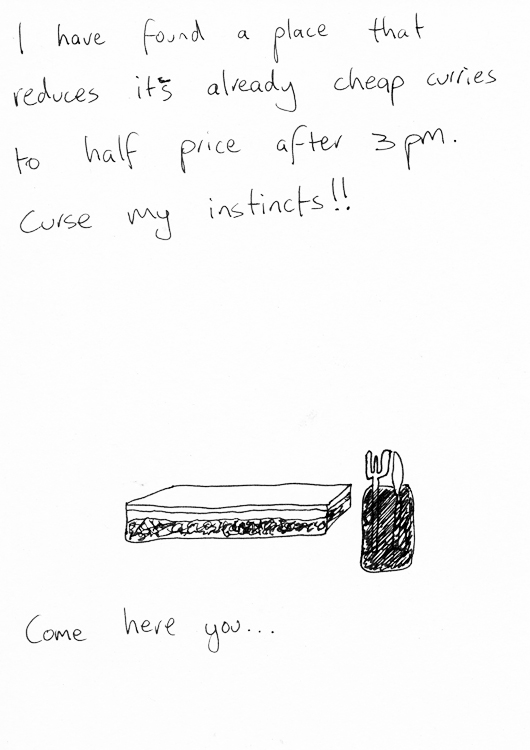 I have found a place that
reduces it's already cheap curries
to half price after 3pm.
Curse my instincts!!
Come here you...